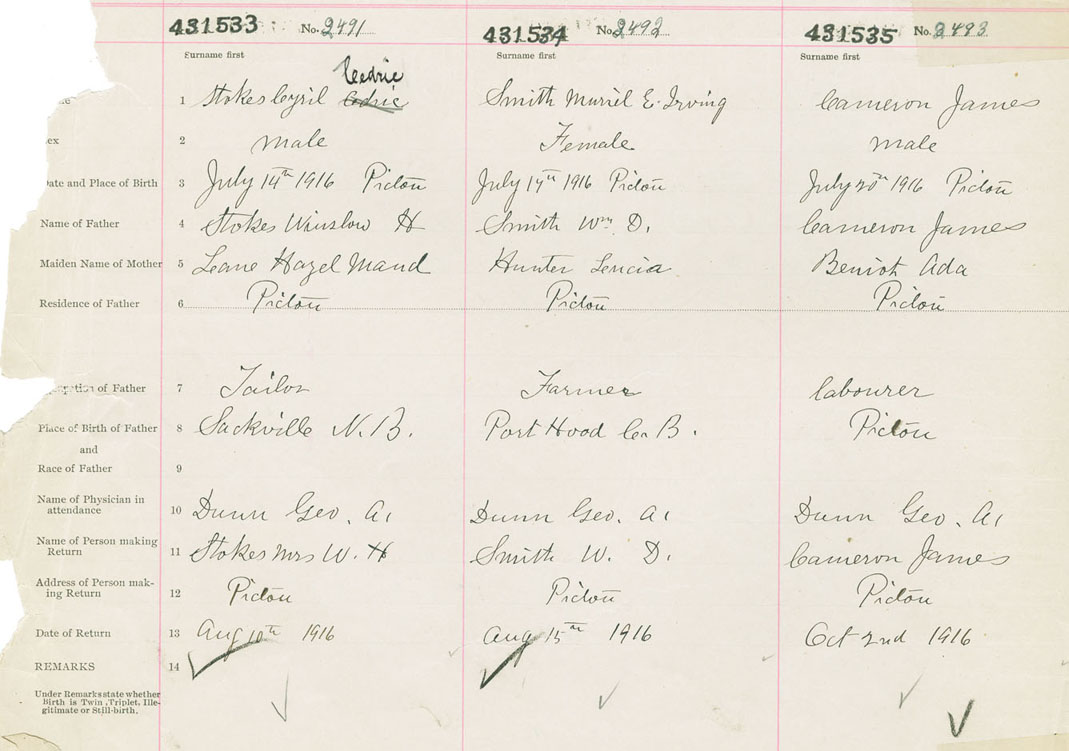 431533 No. 2491 431534 No. 2492 431535 No. 2493
Surname first Surname first Surname first
Cedric
1 Stokes Cyril Cedric Smith Muriel E. Irving Cameron James
ex 2 male Female male
Date and Place of Birth 3 July 14th 1916 Pictou July 17th 1916 Pictou July 20th 1916 Pictou
Name of Father 4 Stokes Winslow H Smith Wm D. Cameron James
Maiden Name of Mother 5 Leane Hazel Maud Hunter Lencia Beniot Ada
Residence of Father 6 Pictou Pictou Pictou
of Father 7 Tailor Farmer labourer
Place of Birth of Father 8 Sackville N.B. Port Hood C.B. Pictou
and
Race of Father 9
Name of Physician in attendance 10 Dunn Geo. A. Dunn Geo. A. Dunn Geo. A.
Name of Person making Return 11 Stokes Mrs W. H Smith W. D. Cameron James
Address of Person mak-ing Return 12 Pictou Pictou Pictou
Date of Return 13 Aug 10th 1916 Aug 15th 1916 Oct 2nd 1916
REMARKS 14
Under Remarks state whether
Birth is Twin, Triplet, Ille-
gitimate or Still-birth.